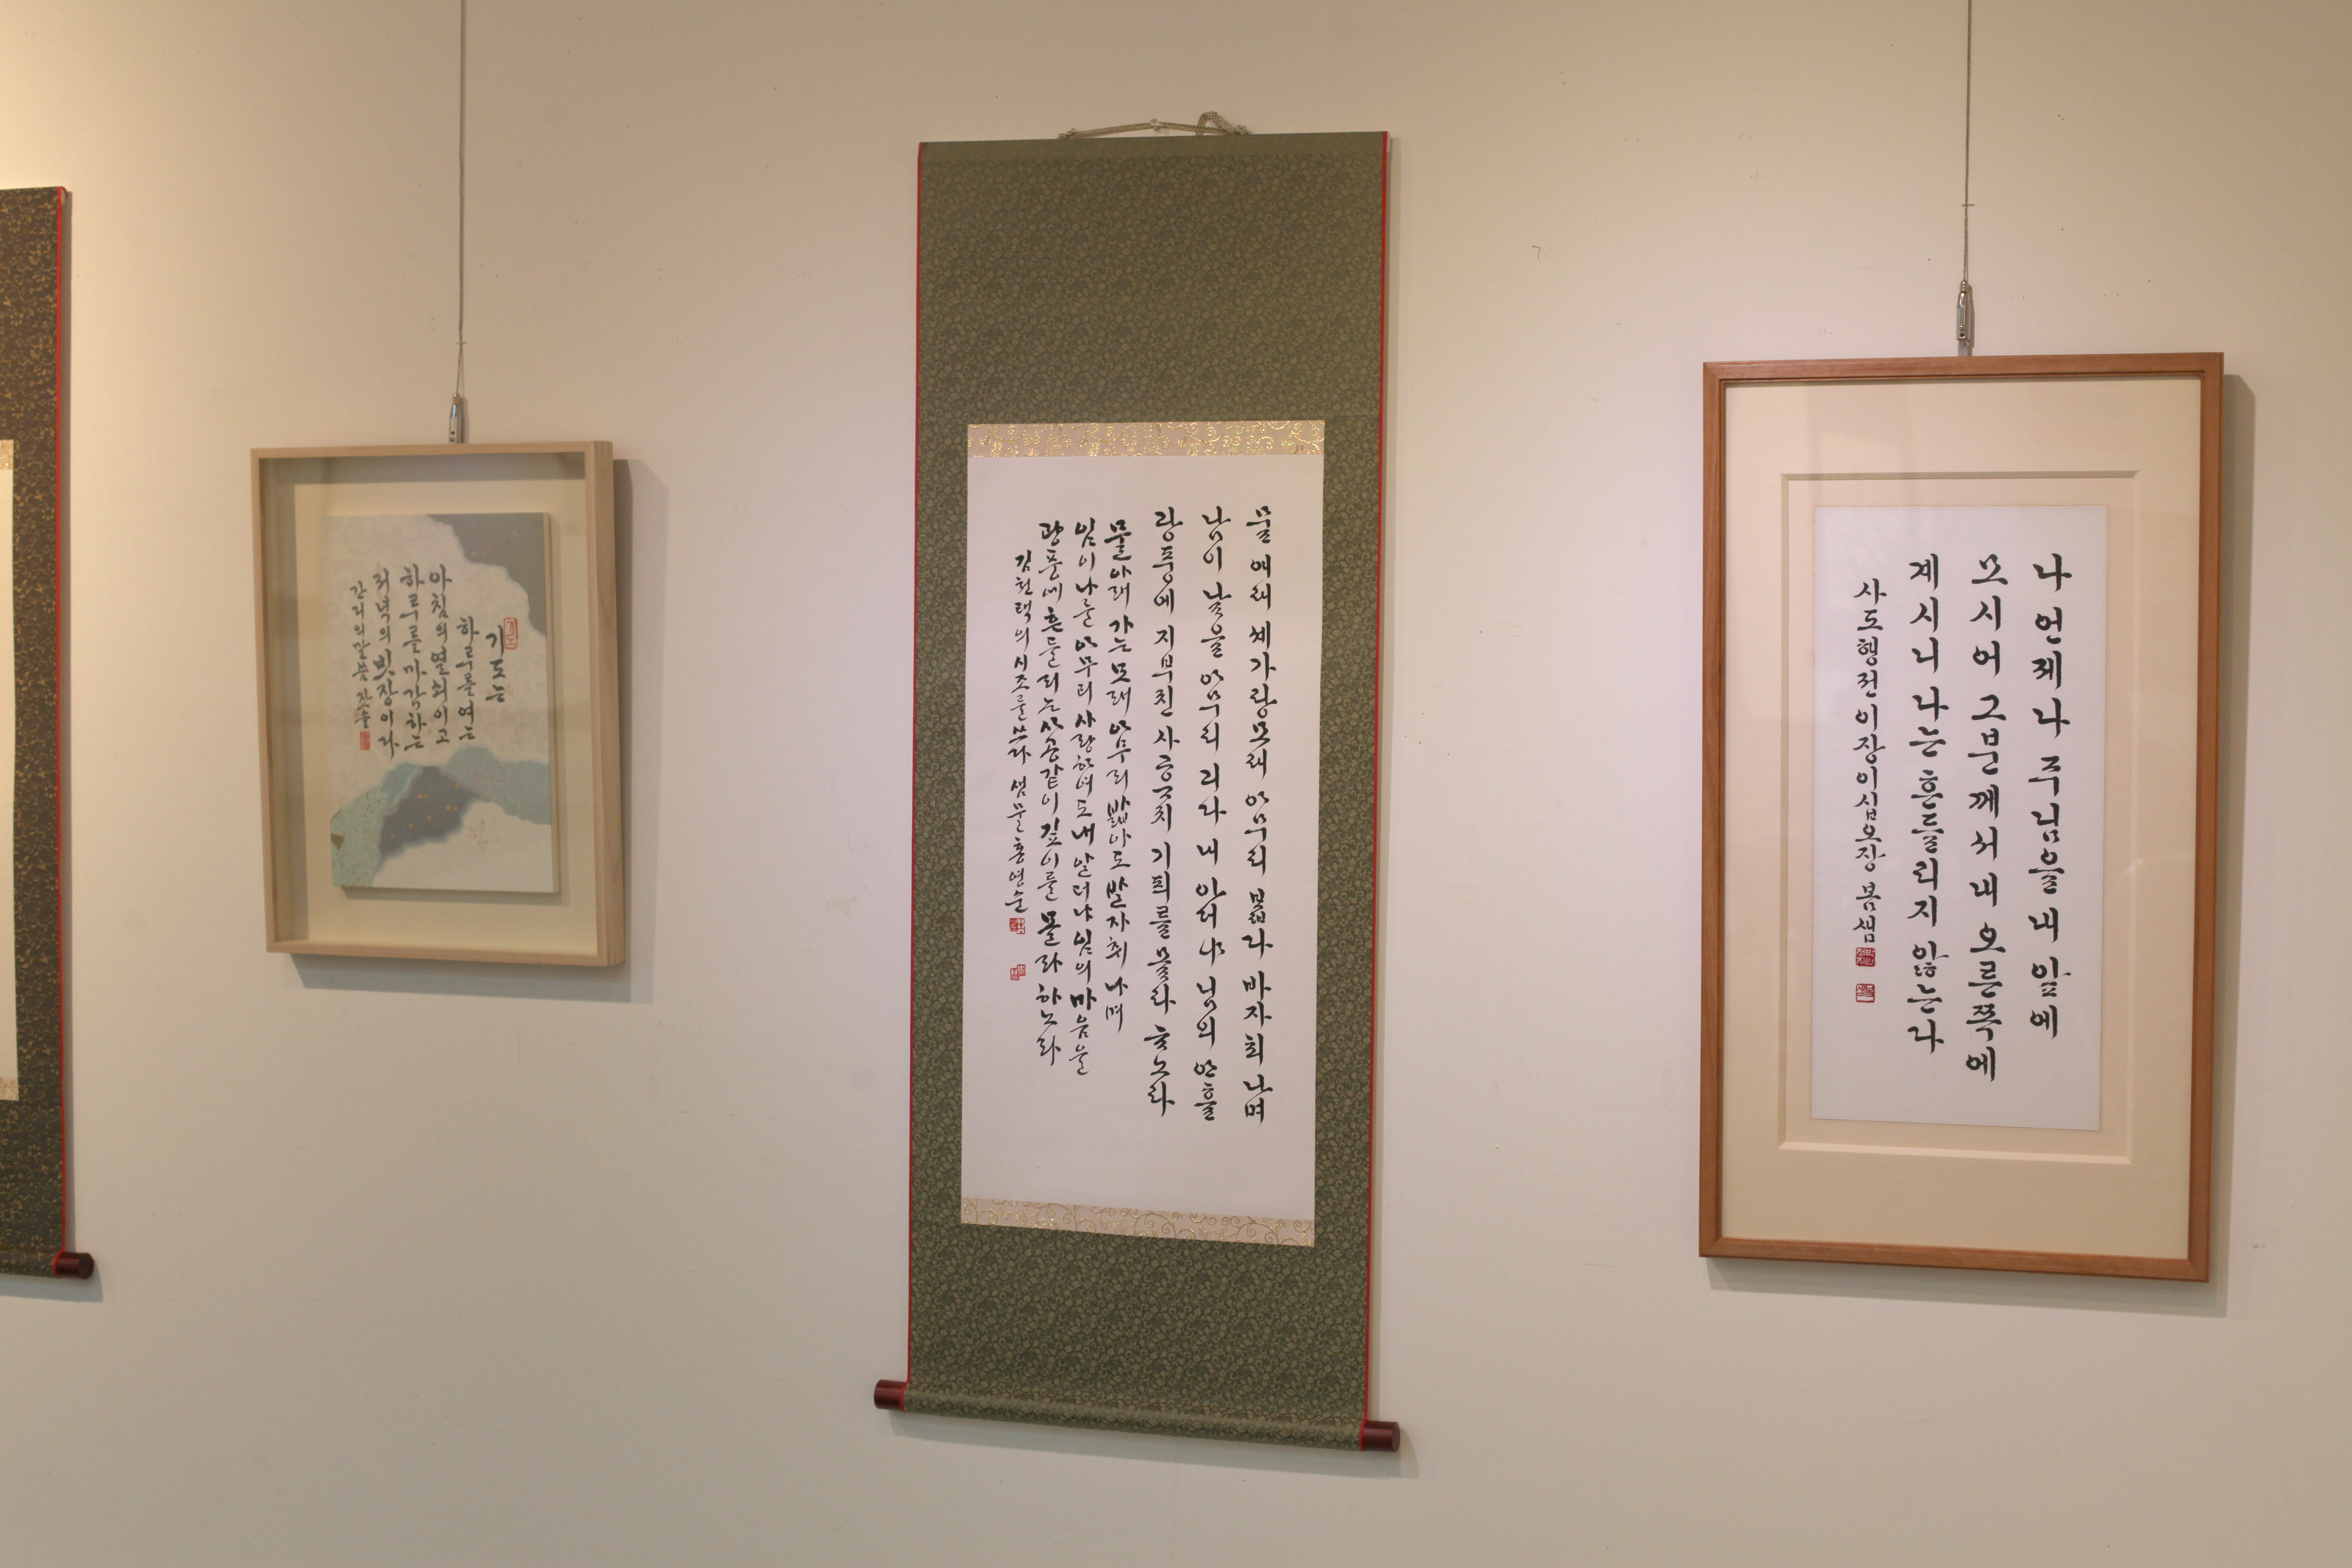 기도는
하루를 여는
아침의 열쇠이고
하루를 마감하는
저녁의 빗장이라
간디의 말씀 잔솔
물 애래 셰가랑모래 아무리 ᄇᆞᆲ다 바자최 나며
님이 날을 아무리 괴다 내 아더냐 님의 안흘
광풍에 지부친 사공ᄀᆞ치 기픠를 몰라 ᄒᆞ노라
물 아래 가는 모래 아무리 밟아도 발자취 나며
임이 나를 아무리 사랑하여도 내 알더냐 임의 마음을
광풍에 흔들리는 사공같이 깊이를 몰라 하노라
김천택의 시조를 쓰다 샘물 홍영순
나 언제나 주님을 내 앞에
모시어 그분께서 내 오른쪽에
계시니 나는 흔들리지 않는다
사도행전 이장이십오장 봄샘